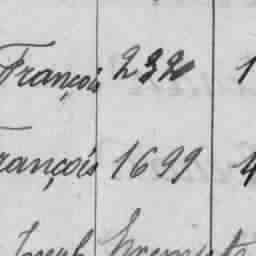 François 232 1
François 1699 4
Joseph